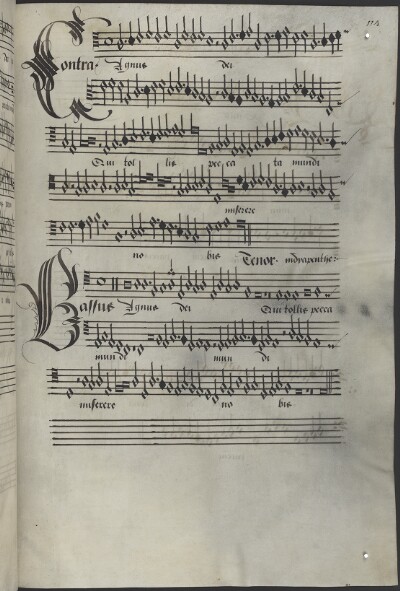 Contra. Agnus dei
Qui tol lis pec ca ta mundi
miserere
no bis Tenor.
Bassus Agnus dei Qui tollis pecca
mundi mun di
miserere no bis